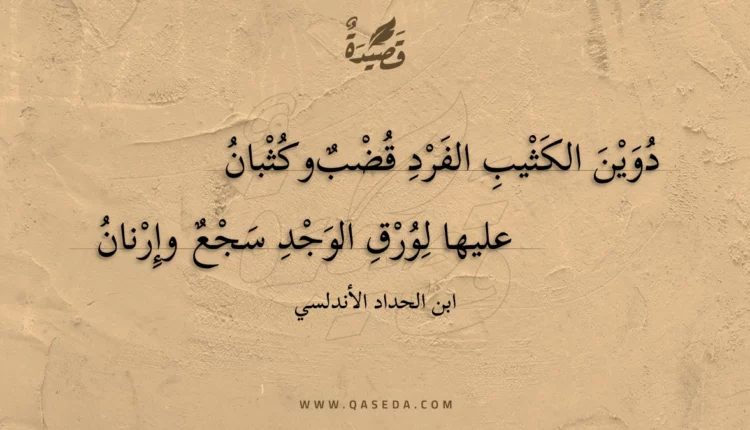 قَصِيدَةٌ
دُوَيْنَ الكَثْيبِ الفَرْدِ قُضْبٌ وكُثْبانُ
عليها لِوُرْقِ الوَجْدِ سَجْعٌ وإِرْنانُ
ابن الحداد الأندلسي
WWW.QASEDA.COM